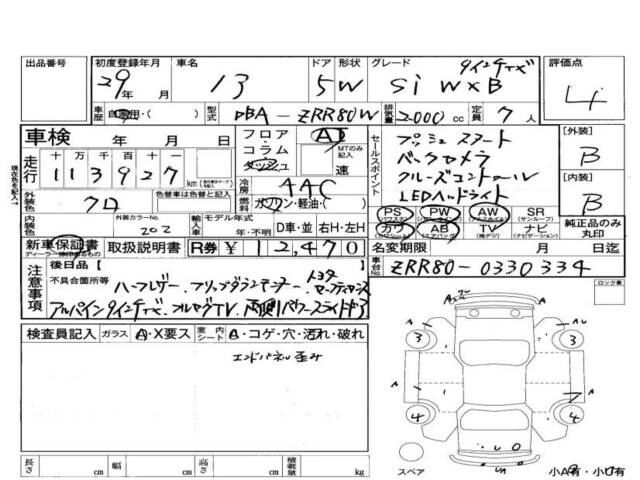 出品番号 初度登録年月 車名 ドア 形状 グレード 評価点
29年 月 13 5 W Si W×B 4
車歴 自家用・( ) 型式 DBA-ZRR80W 排気量 2000 cc 定員 7 人
車検 年 月 日 フロア コラム AT MTのみ記入 速
走行 十万 万 千 百 十 一
113927 km
冷房 AAC
燃料 ガソリン・軽油・( )
外装色 クロ 色替車は色替前と記入
内装色 外装カラーNo. 202 輸入車 モデル年式 年・不明 D車・並 右H・左H
現在色を記入→
セールスポイント プッシュスタート
バックカメラ
クルーズコントロール
LEDヘッドライト
PS PW AW SR
(パワステ) (サンルーフ)
カワ AB TV ナビ
(エアバック) (地デジ) (ナビゲーション)
[外装] B
[内装] B
純正品のみ丸印
新車保証書 取扱説明書 R券 ¥12,470 名変期限 月 日迄
車台No. ZRR80-0330334
注意事項 後日品【 】
不具合箇所等 ハーフレザー、フリップダウンモニター、トヨタセーフティセンス
アルパイン9インチナビ、フルセグTV、両側パワースライドドア
検査員記入 ガラス A・X要ス 室内シート A・コゲ・穴・汚れ・破れ
エンドパネル歪み
ロック車
A A
3 3
A A
4 4
スペア 小A有・小U有
長さ cm 幅 cm 高さ cm 積載量 kg